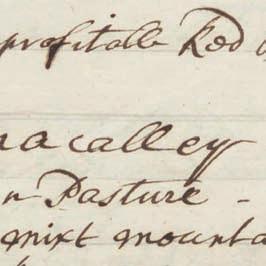 profitable Red
nacalley
n Pasture -
mixt mounta